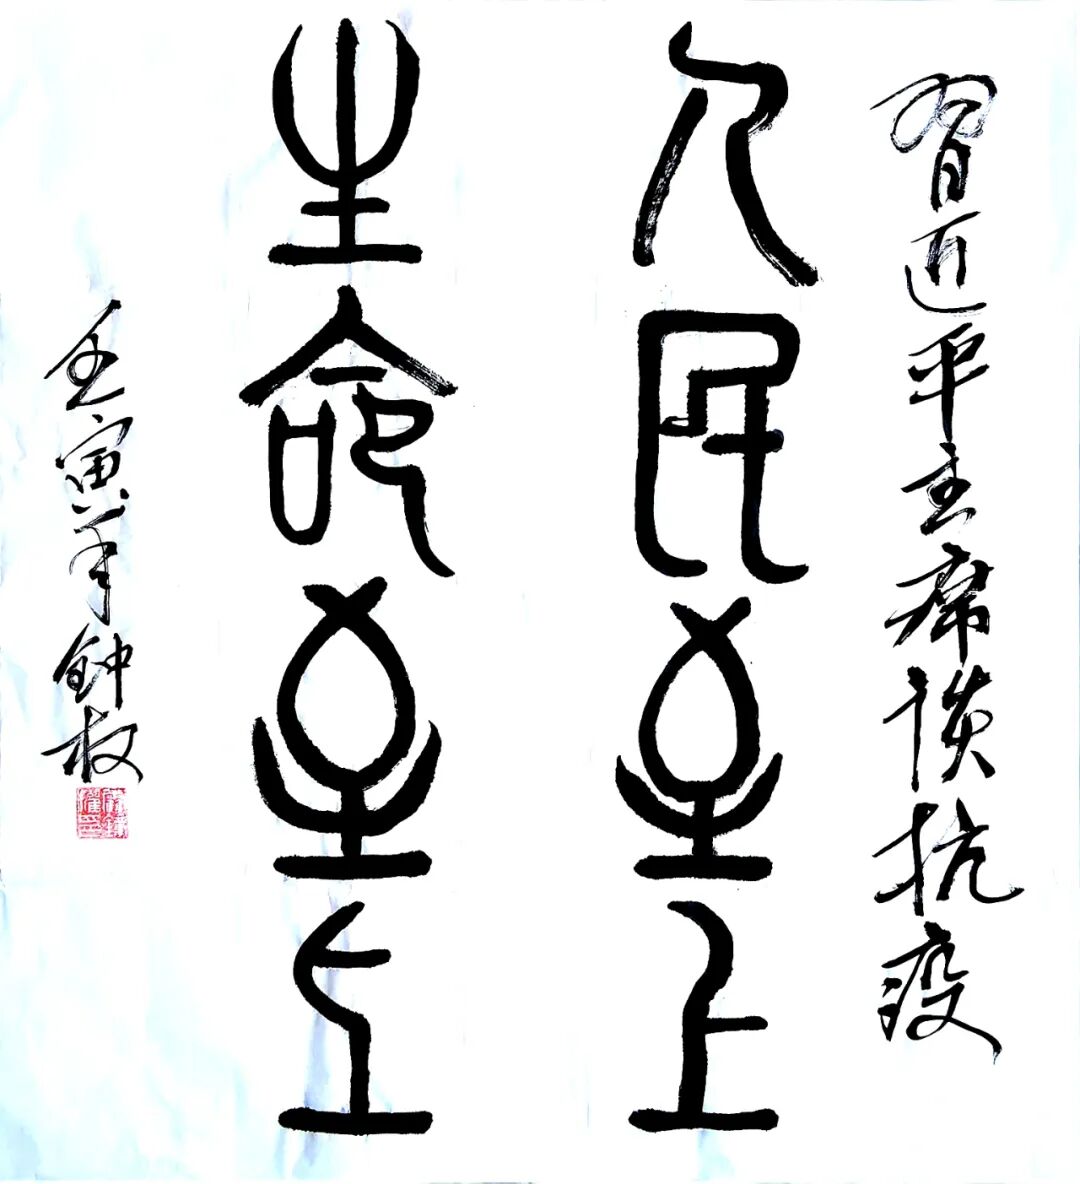 習近平主席谈抗疫
人民至上
生命至上
壬寅年钟权